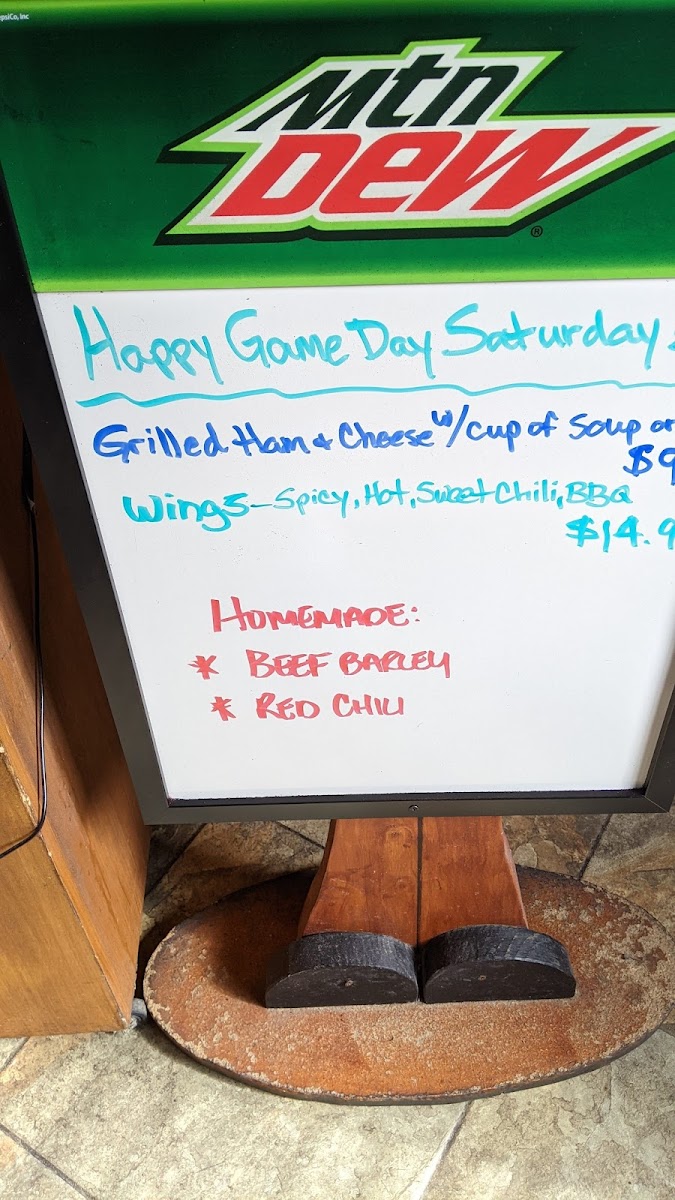 epsiCo, Inc
Mtn
Dew
®
Happy Game Day Saturday
Grilled Ham & Cheese w/cup of Soup or
$9
Wings - Spicy, Hot, Sweet Chili, BBQ
$14.9
HOMEMADE:
* BEEF BARLEY
* RED CHILI